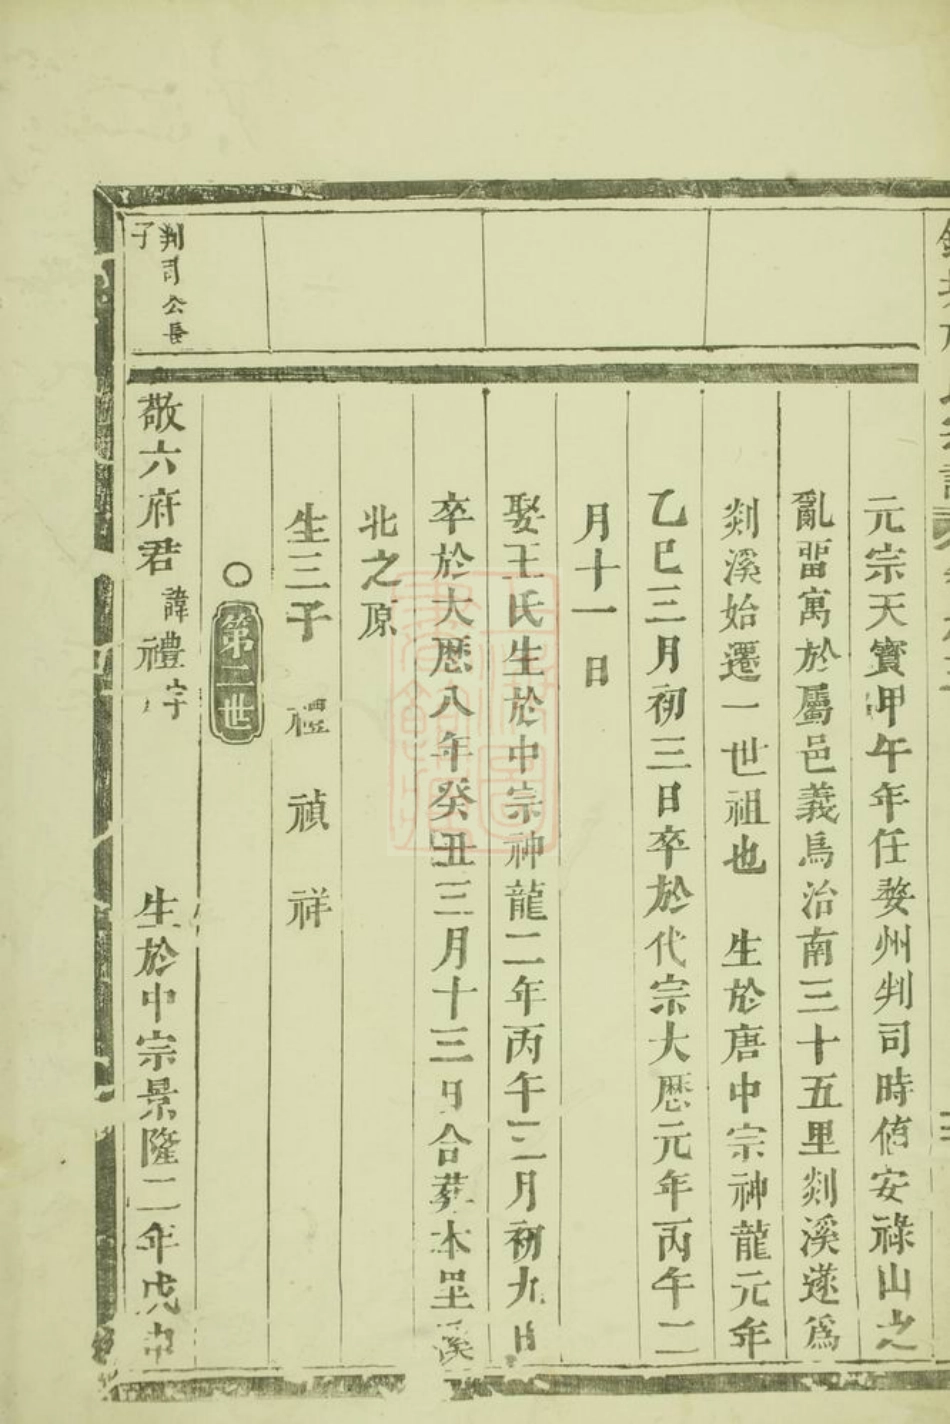 元宗天寶甲午年任婺州判司時值安祿山之
亂畱寓於屬邑義烏治南三十五里剡溪遂爲
剡溪始遷一世祖也 生於唐中宗神龍元年
乙巳三月初三日卒於代宗大厯元年丙午二
月十一日
娶王氏生於中宗神龍二年丙午三月初九日
卒於大厯八年癸丑三月十三日合葬本里溪
北之原
生三子 禮 禎 祥
○第二世
判司公長
子
敬六府君 諱禮字 生於中宗景隆二年戊申